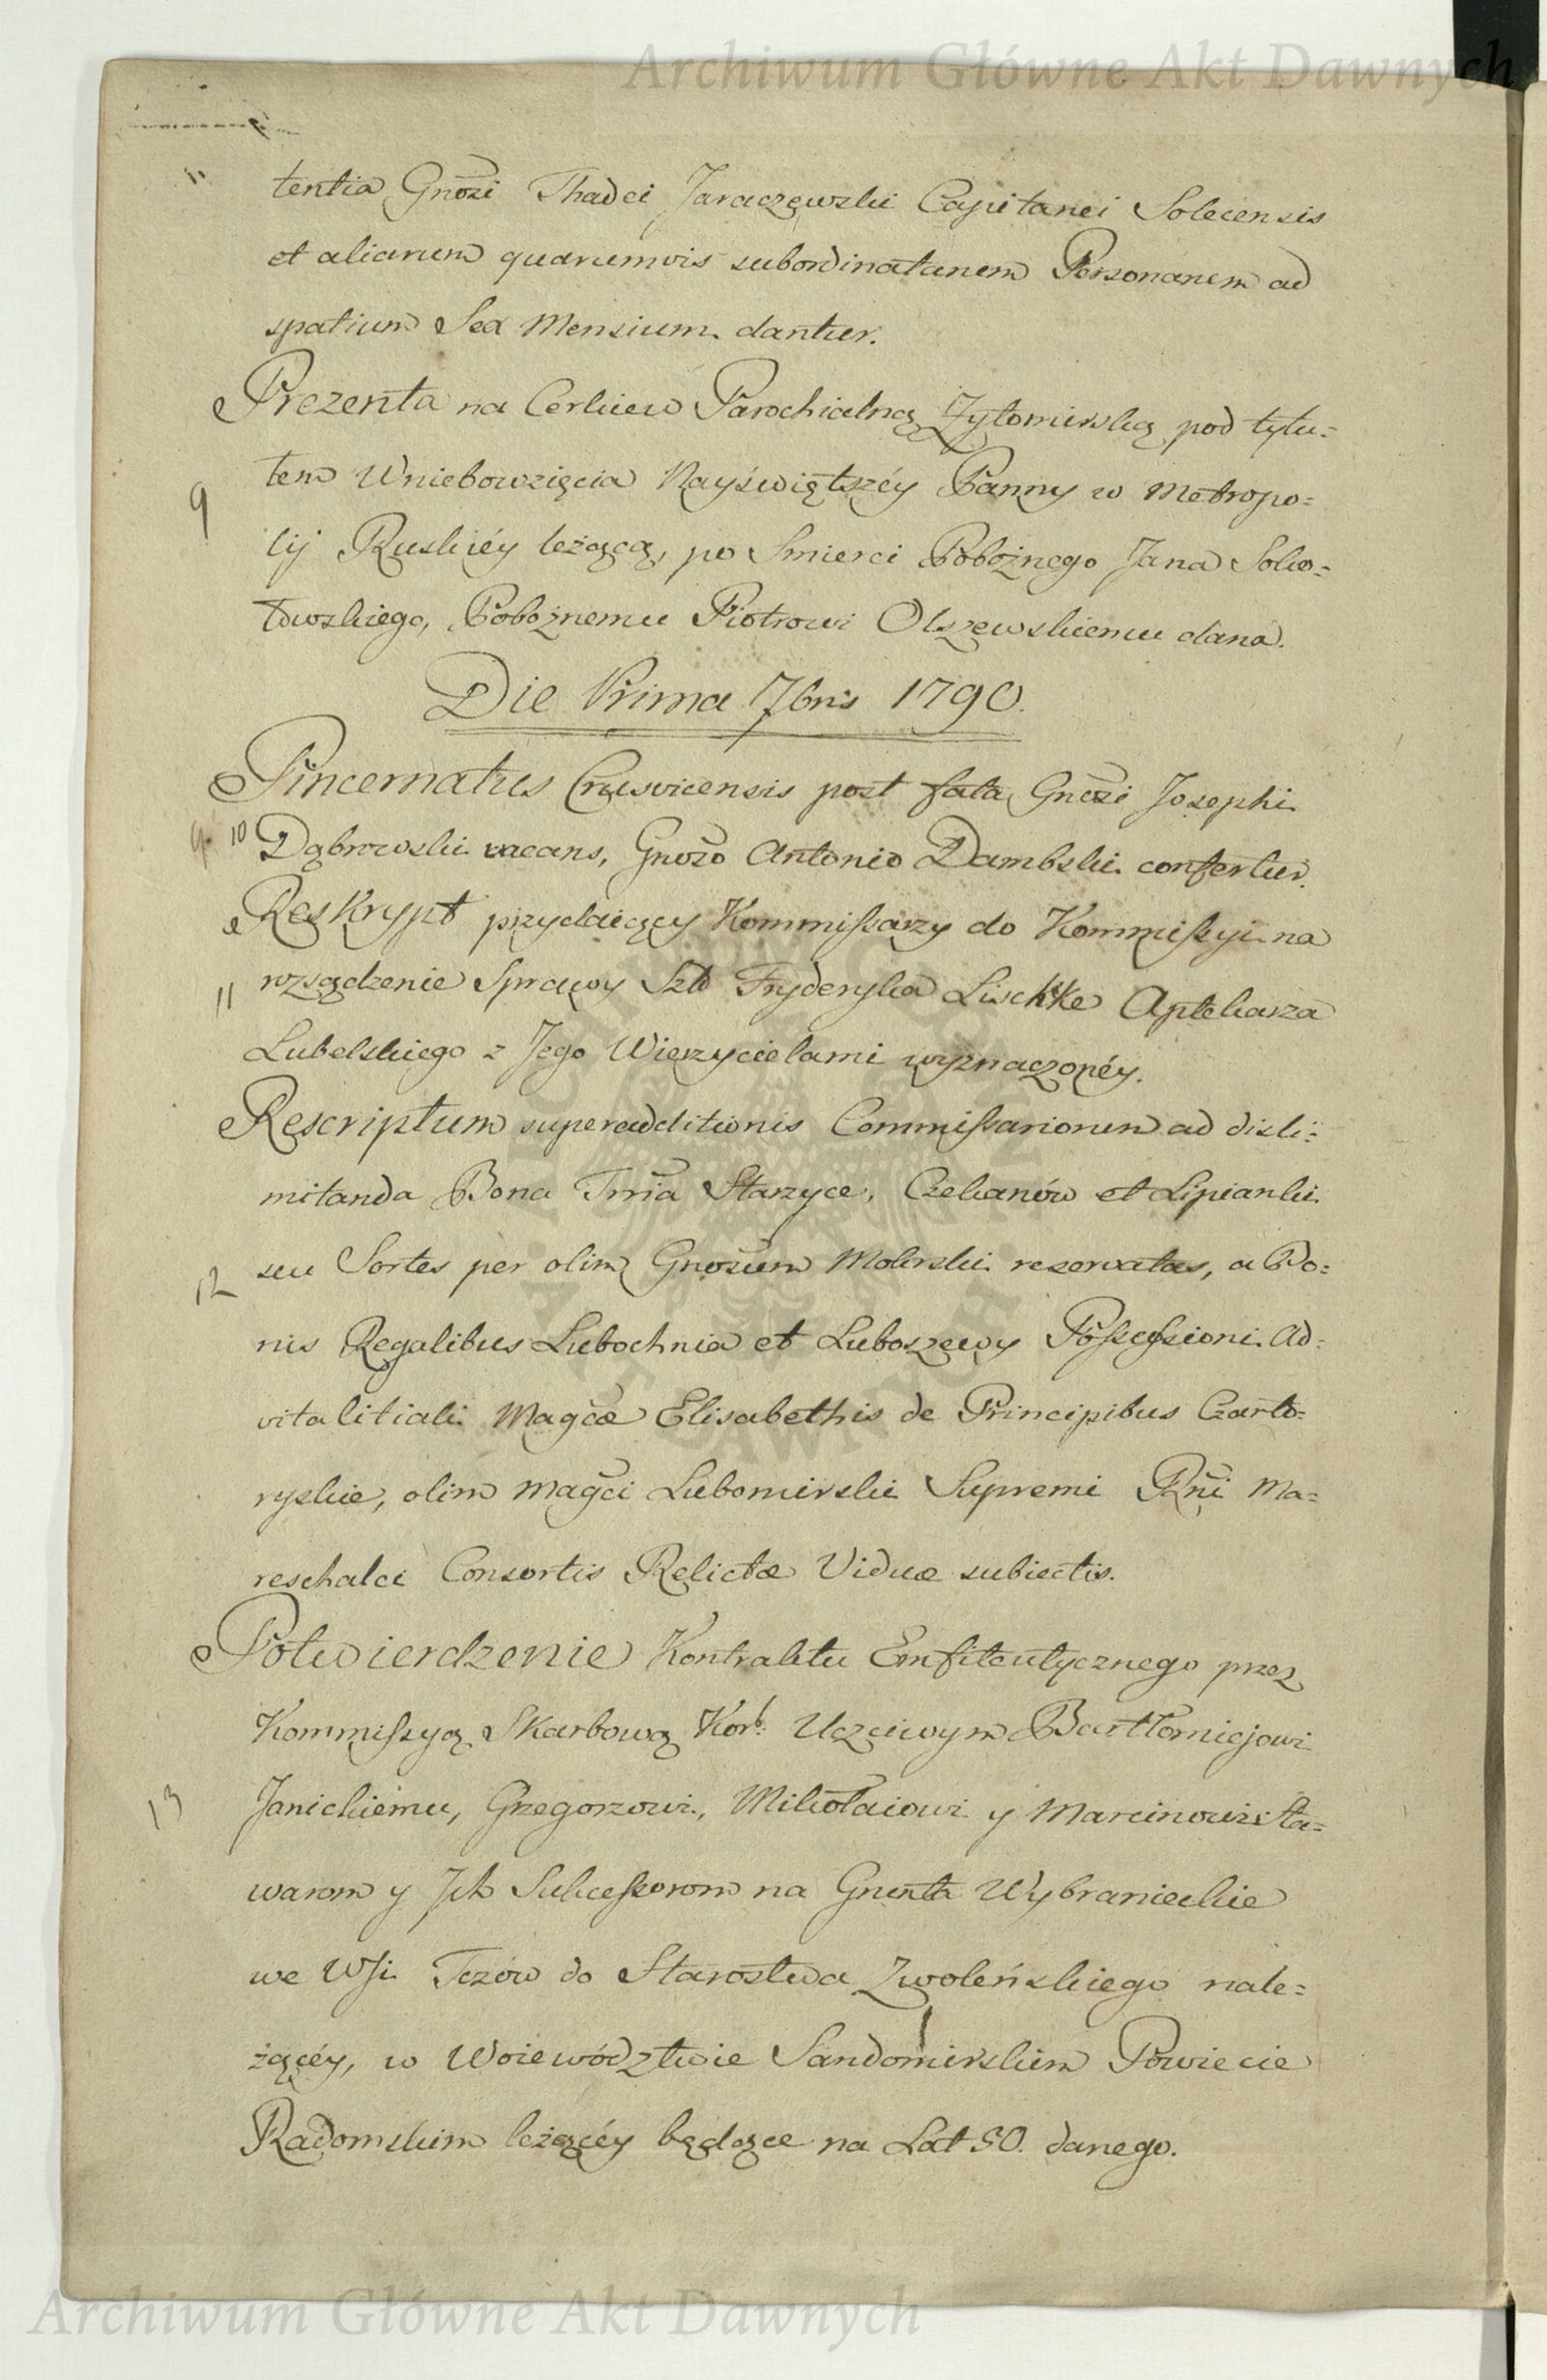 Archiwum Główne Akt Dawnych
tentia Gnosi Thadei Jaraczewski Capitanei Solecensis
et aliarum quarumvis subordinatarum Personarum ad
spatium Sex Mensium dantur.
Prezenta na Cerkiew Parochialną Zytomirską pod tytu=
łem Wniebowzięcia Nayświętszéy Panny w Metropo=
9
lij Ruskiéy leżącą, po Smierci Pobożnego Jana Soko=
łowskiego, Pobożnemu Piotrowi Olszewskiemu dana.
Die Prima 7bris 1790.
Pincernatus Crusvicensis post fata Gnosi Josephi
10 Dąbrowski vacans, Gnoso Antonio Dambski confertur.
Reskrypt przydaiący Kommissarzy do Kommissyi na
11 rozsądzenie Sprawy Szl Fryderyka Lischke Aptekarza
Lubelskiego z Jego Wierzycielami wyznaczonéy.
Rescriptum superadditionis Commissariorum ad disli=
mitanda Bona Trria Starzyce, Czekanów et Lipianki
12 seu Sortes per olim Gnosum Mokrski reservatas, a Bo=
nis Regalibus Lubochnia et Luboszewy Possessioni Ad=
vitalitiali Magcæ Elisabethis de Principibus Czarto=
ryskie, olim Magci Lubomirski Supremi Rni Ma=
reschalci Consortis Relictæ Viduæ subiectis.
Potwierdzenie Kontraktu Emfiteutycznego przez
Kommissyą Skarbową Kor: Uczciwym Bartłomiejowi
13 Janickiemu, Grzegorzowi, Mikołaiowi y Marcinowi Sta=
warom y Jch Sukcessorom na Grunta Wybranieckie
we Wsi Tczów do Starostwa Zwoleńskiego nale=
żącéy, w Woiewództwie Sandomirskim Powiecie
Radomskim leżącéy będące na Lat 50. danego.
Archiwum Główne Akt Dawnych